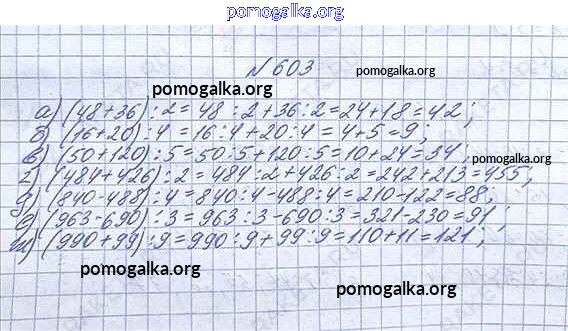 pomogalka.org
№ 603
pomogalka.org
pomogalka.org
а) (48+36):2=48:2+36:2=24+18=42;
б) (16+20):4=16:4+20:4=4+5=9;
в) (50+120):5=50:5+120:5=10+24=34;
pomogalka.org
г) (484+426):2=484:2+426:2=242+213=455;
д) (840-488):4=840:4-488:4=210-122=88;
е) (963-690):3=963:3-690:3=321-230=91;
ж) (990+99):9=990:9+99:9=110+11=121;
pomogalka.org
pomogalka.org